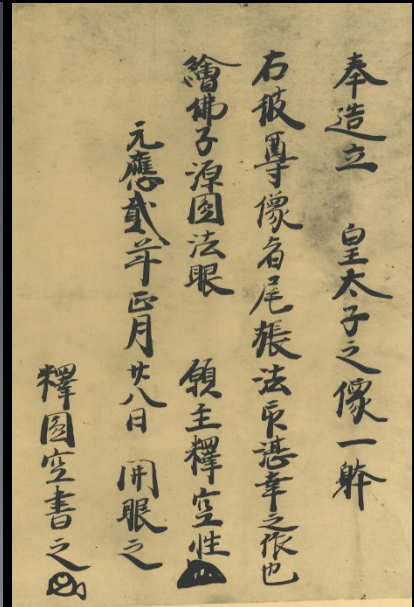 奉造立　皇太子之像一躰
右彼尊像者尾張法印湛幸之作也
繪佛子源圓法眼　願主釋空性
元應貳年正月廿八日　開眼之
釋圓空書之